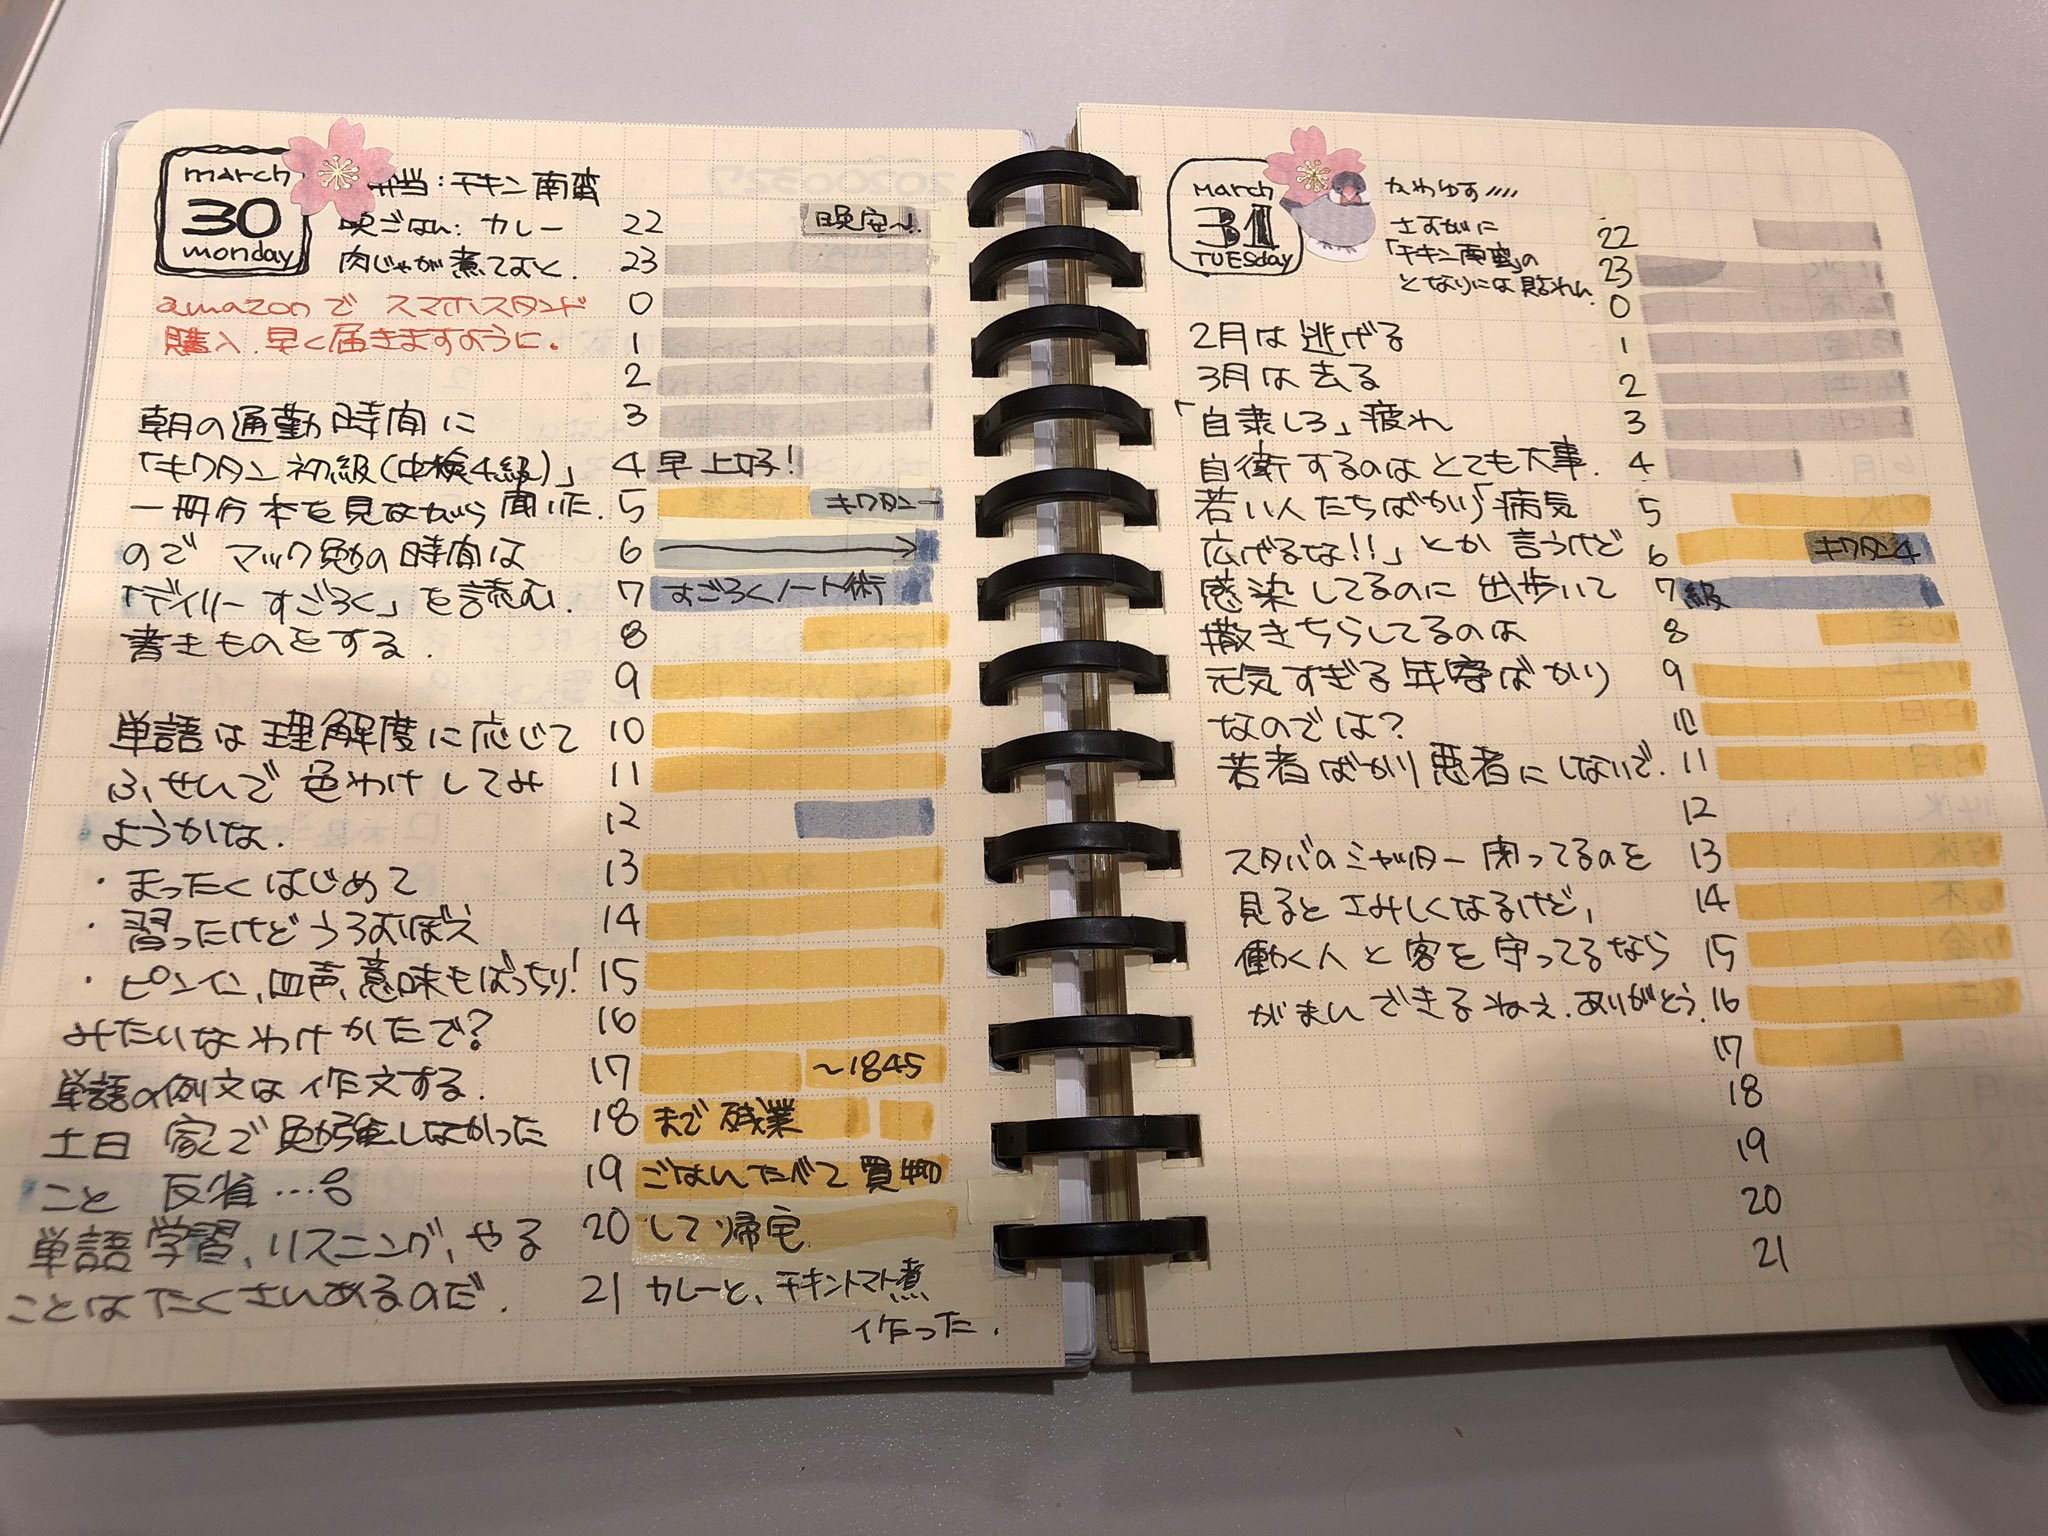 march
30
monday
弁当：チキン南蛮
晩ごはん：カレー
肉じゃが煮ておく.
amazonで スマホスタンド
購入.早く届きますように.
朝の通勤時間に
「キクタン 初級(中検4級)」
一冊分本を見ながら聞いた.
ので マック勉の時間は
「デイリーすごろく」を読む.
書きものをする.
単語は理解度に応じて
ふせんで 色わけしてみ
ようかな.
・まったくはじめて
・習ったけどうろおぼえ
・ピンイン、四声、意味もばっちり!
みたいなわけかたで?
単語の例文は作文する.
土日 家で勉強しなかった
こと 反省…。
単語学習、リスニング、やる
ことはたくさんあるのだ.
22 晩安~!
23
0
1
2
3
4 早上好!
5 キクタン
6
7 すごろくノート術
8
9
10
11
12
13
14
15
16
17 ~1845
18 まで残業
19 ごはんたべて 買物
20 して帰宅.
21 カレーと、チキントマト煮
作った.
March
31
TUESday
かわゆす////
さすがに
「チキン南蛮」の
となりには貼れん
2月は逃げる
3月は去る
「自粛しろ」疲れ
自衛するのはとても大事.
若い人たちばかり「病気
広げるな!!」とか言うけど
感染してるのに出歩いて
撒きちらしてるのは
元気すぎる年寄ばかり
なのでは?
若者ばかり悪者にしないで.
スタバのシャッター閉ってるのを
見るとさみしくなるけど,
働く人と客を守ってるなら
がまんできるねえ.ありがとう.
22
23
0
1
2
3
4
5
6 キクタン4
7 級
8
9
10
11
12
13
14
15
16
17
18
19
20
21